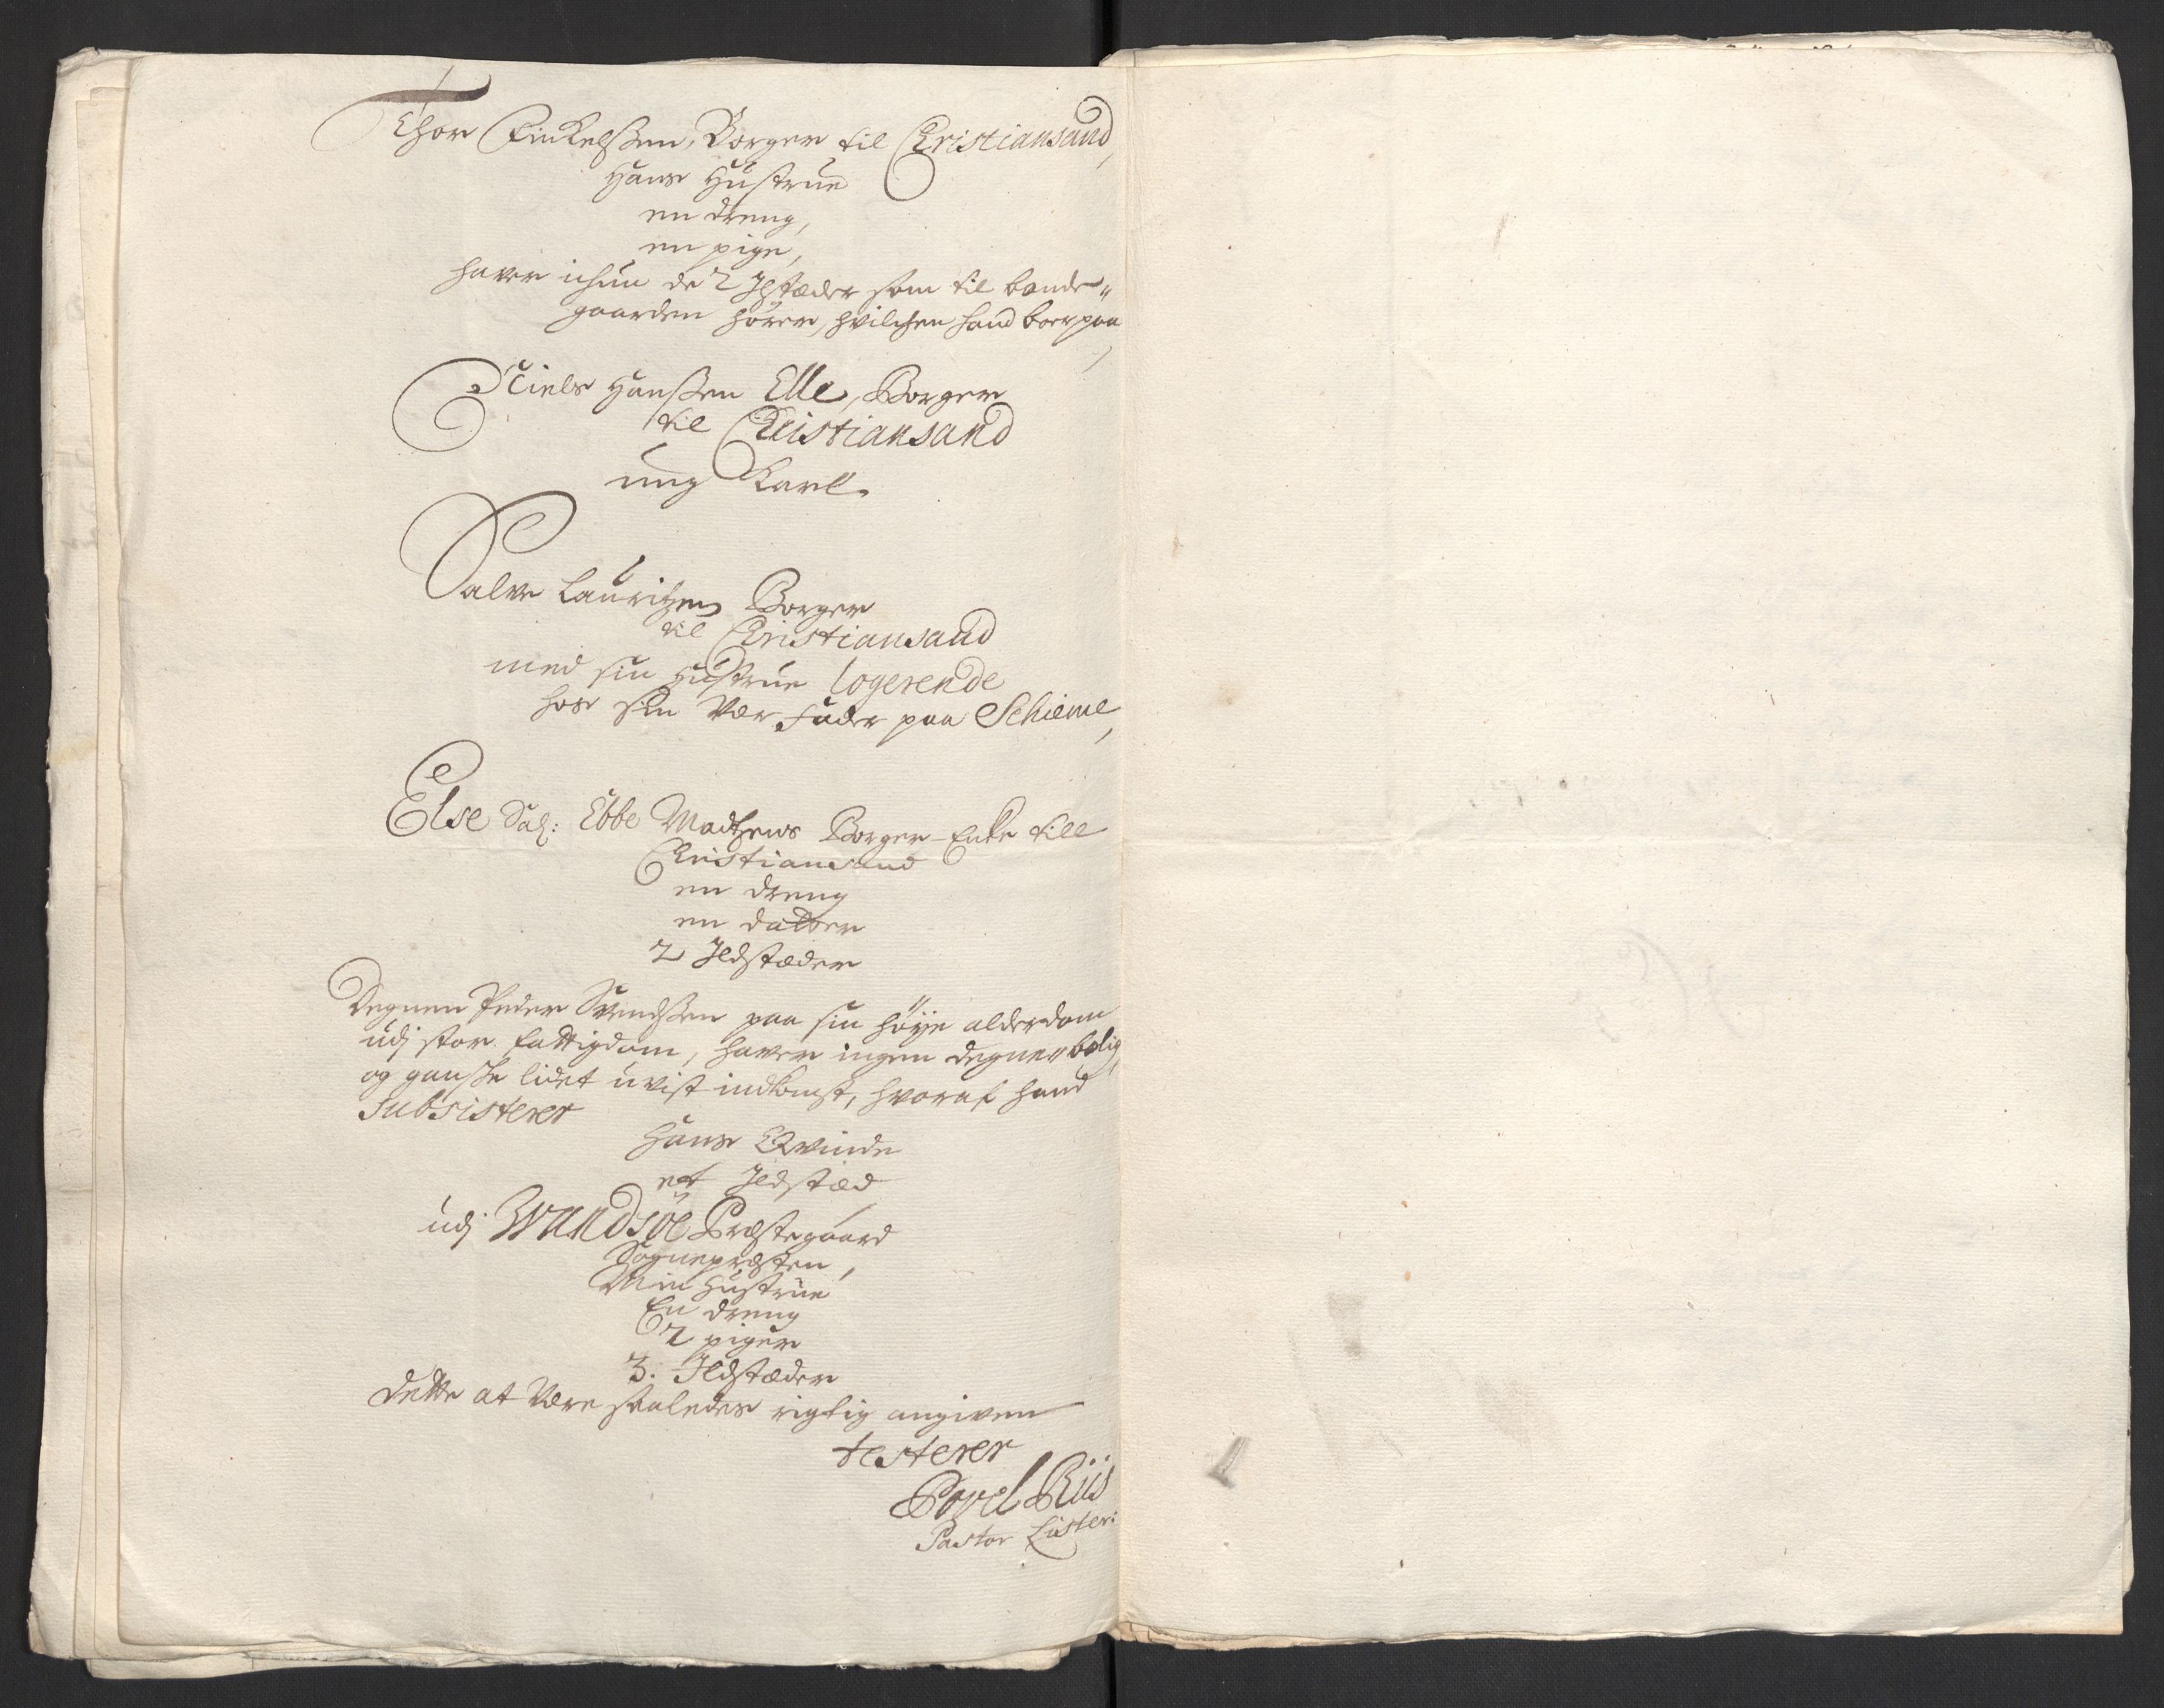 Thor Einkelssen, Borger til Christiansand,
Hans Hustrue
en dreng,
en pige,
haver ichun de 2 Ildstæder som til bonde„
gaarden hörer, hvilchen hand boer paa,
Niels Hanssen Elle, Borger
til Christiansand
ung Karl.
Salve Lauritzen Borger
til Christiansand
med sin Hustrue logerende
hos sin Vær Fader paa Schieme,
Else Sal: Ebbe Madtzens Borger-Enke till
Christiansand
en dreng
en datter
2 Ildstæder
Degnen Peder Svendssen paa sin höyje alderdom
udj stor fattigdom, haver ingen degne„bolig,
og gansche lidet uvist indkomst, hvoraf hand
subsisterer
Hans Qvinde
et Ildstæd
udj Wandsöe Præstegaard
Sognepræsten,
Min Hustrue
En dreng
2 piger
3. Ildstæder
Dette at Være saaledes rigtig angiven
testerer
Povel Riis
Pastor Lister: